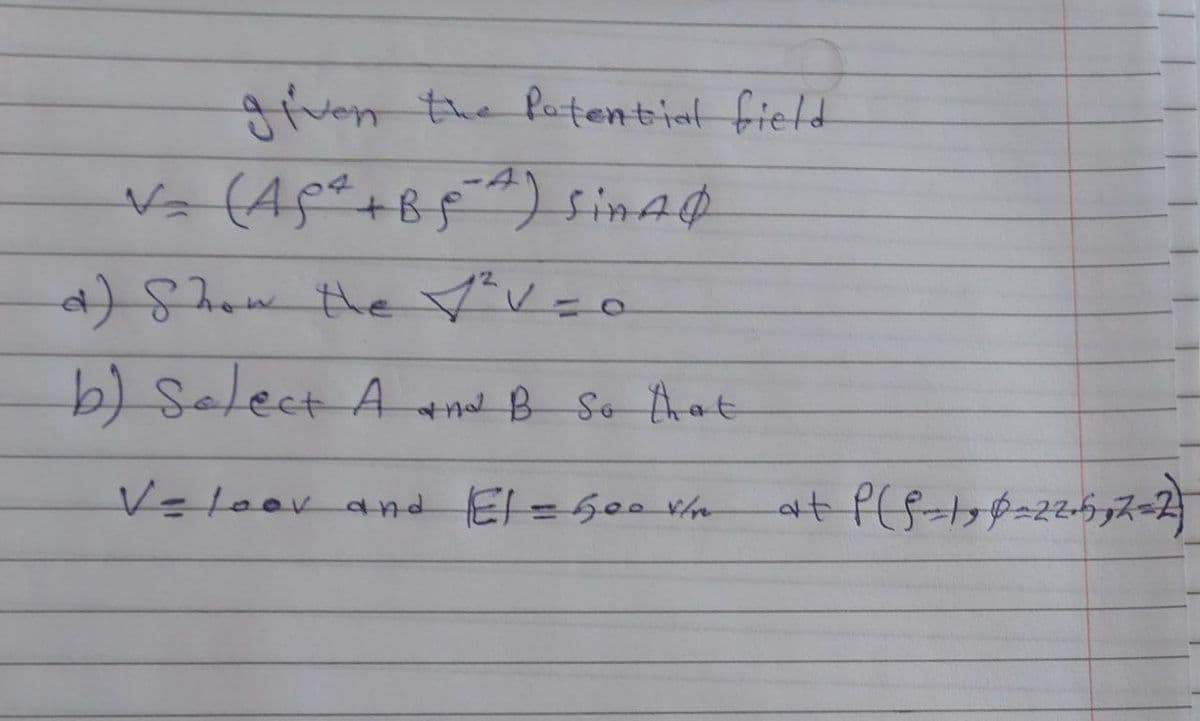 given the Potential field
V = (Aρ⁴ + Bρ⁻⁴) sin4φ
a) Show the ∇²V = 0
b) Select A and B So that
V = 100V and |E| = 500 V/m at P(ρ=1, φ=22.5, Z=2)